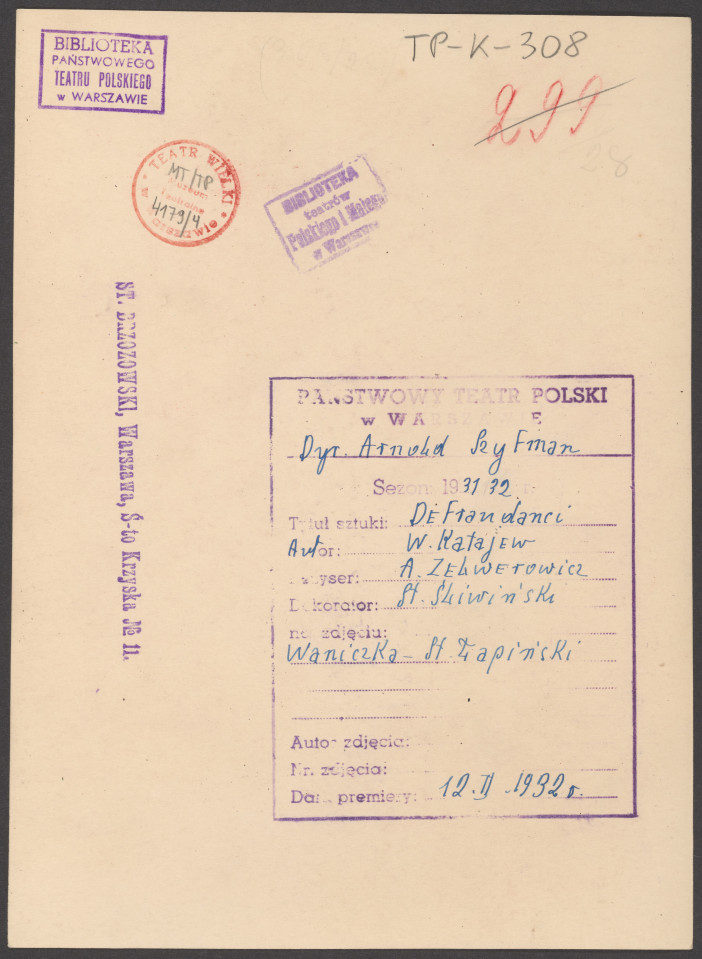 BIBLIOTEKA
PAŃSTWOWEGO
TEATRU POLSKIEGO
w WARSZAWIE
TP-K-308
299
28
TEATR WIELKI
MT/TP
Muzeum
Teatralne
4179/4
BIBLIOTEKA
teatrów
Polskiego i Małego
w Warszawie
ST. BRZOZOWSKI, Warszawa, Ś-to Krzyska № 11.
PAŃSTWOWY TEATR POLSKI
w WARSZAWIE
Dyr. Arnold Szyfman
Sezon 1931/32 r.
Tytuł sztuki: Defraudanci
Autor: W. Katajew
Reżyser: A. Zelwerowicz
Dekorator: St. Śliwiński
na zdjęciu:
Waniczka - St. Łapiński
Autor zdjęcia:
Nr. zdjęcia:
Data premiery: 12.II.1932 r.